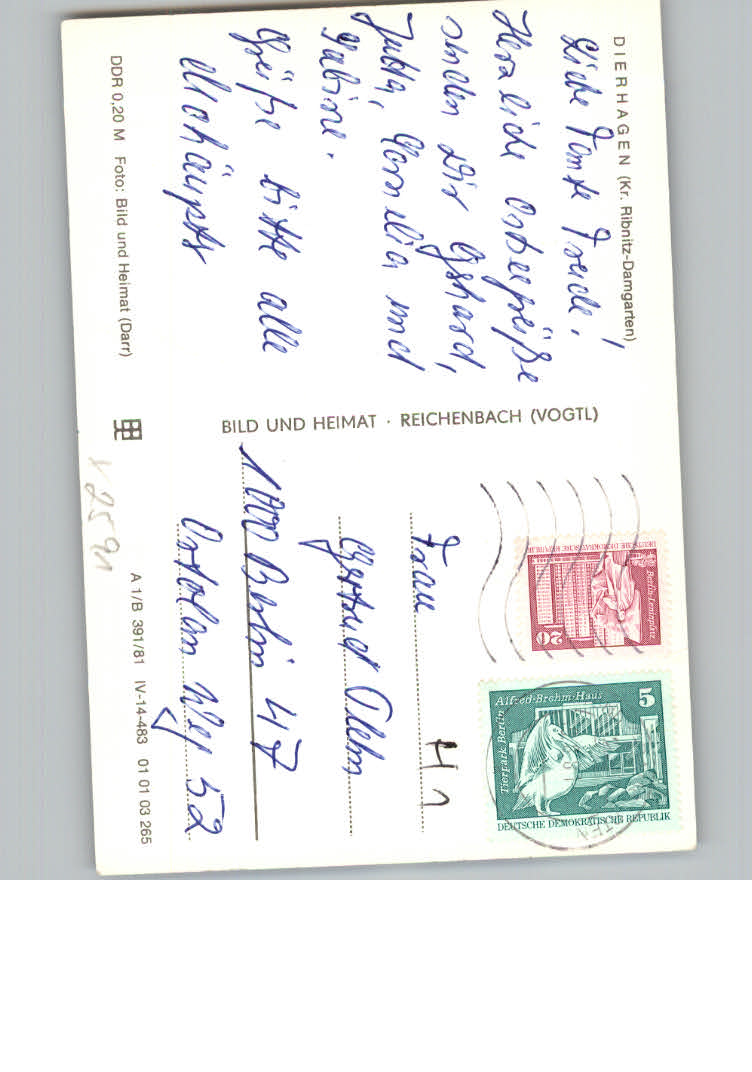 DIERHAGEN (Kr. Ribnitz-Damgarten)
Liebe Tante Friede!
Herzliche Ostseegrüße
senden Dir Gerhard,
Jutta, Cornelia und
Sabine.
Grüße bitte alle
Mohaupts
DDR 0,20 M Foto: Bild und Heimat (Darr)
BILD UND HEIMAT · REICHENBACH (VOGTL)
Frau
H 1
Gertrud
1000 Berlin 47
Ortolan Weg 52
A 1/B 391/81 IV-14-483 01 01 03 265
V 2591
DEUTSCHE DEMOKRATISCHE REPUBLIK
Berlin-Leninplatz
20
5
Alfred-Brehm-Haus
Tierpark Berlin
DEUTSCHE DEMOKRATISCHE REPUBLIK